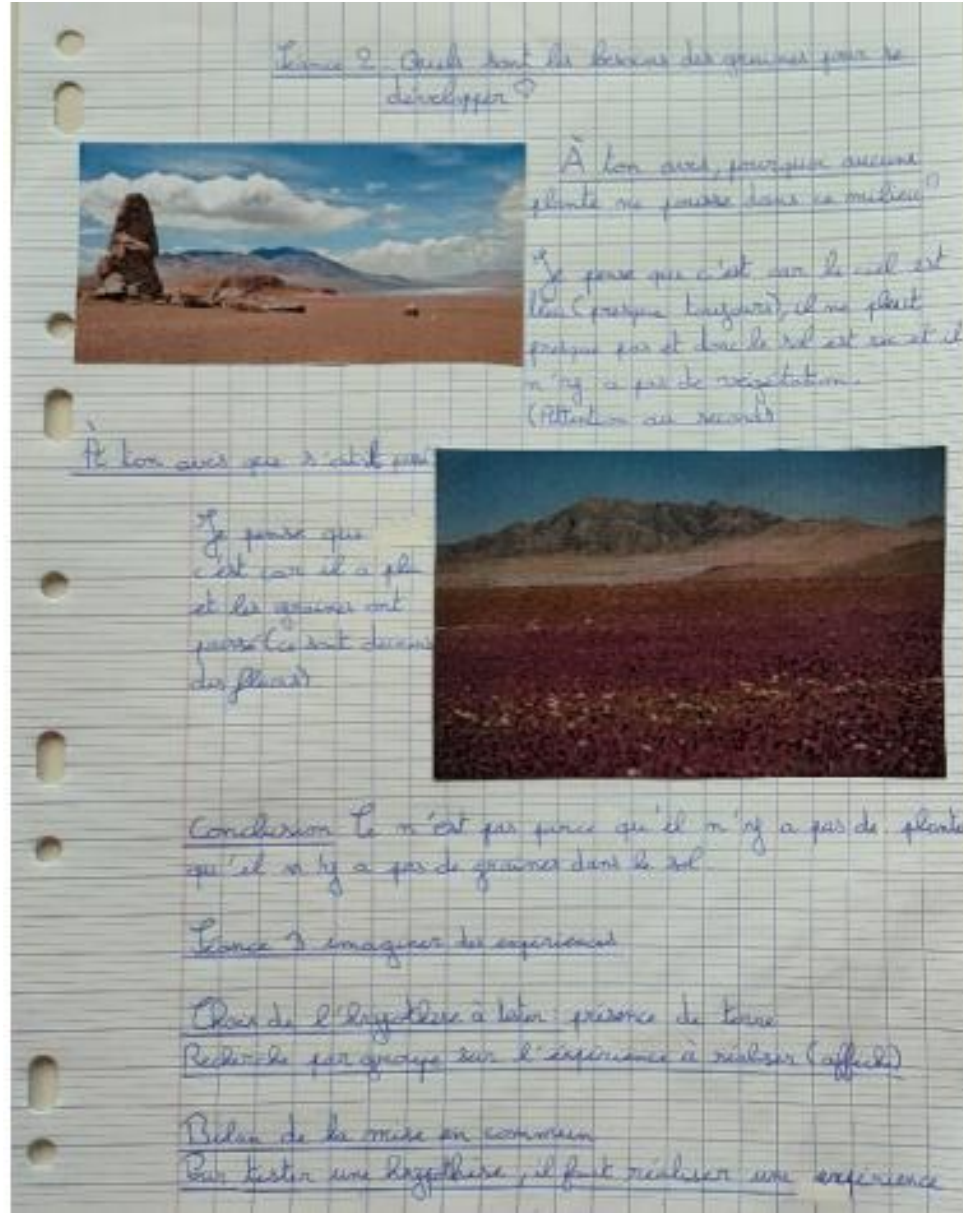 Séance 2 Quels sont les besoins des graines pour se
développer ?
À ton avis, pourquoi aucune
plante ne pousse dans ce milieu ?
Je pense que c'est car le ciel est
bleu (presque toujours), il ne pleut
presque pas et donc le sol est sec et il
n'y a pas de végétation.
(Attention au
À ton avis que s'est-il
Je pense que
c'est car il a plu
et les graines ont
poussé (ce sont
des fleurs)
Conclusion Ce n'est pas parce qu'il n'y a pas de plante
qu'il n'y a pas de graines dans le sol.
Séance 3 imaginer des expériences
Choix de l'hypothèse à tester présence de terre
Recherche par groupe sur l'expérience à réaliser (affiche)
Bilan de la mise en commun
Pour tester une hypothèse, il faut réaliser une expérience